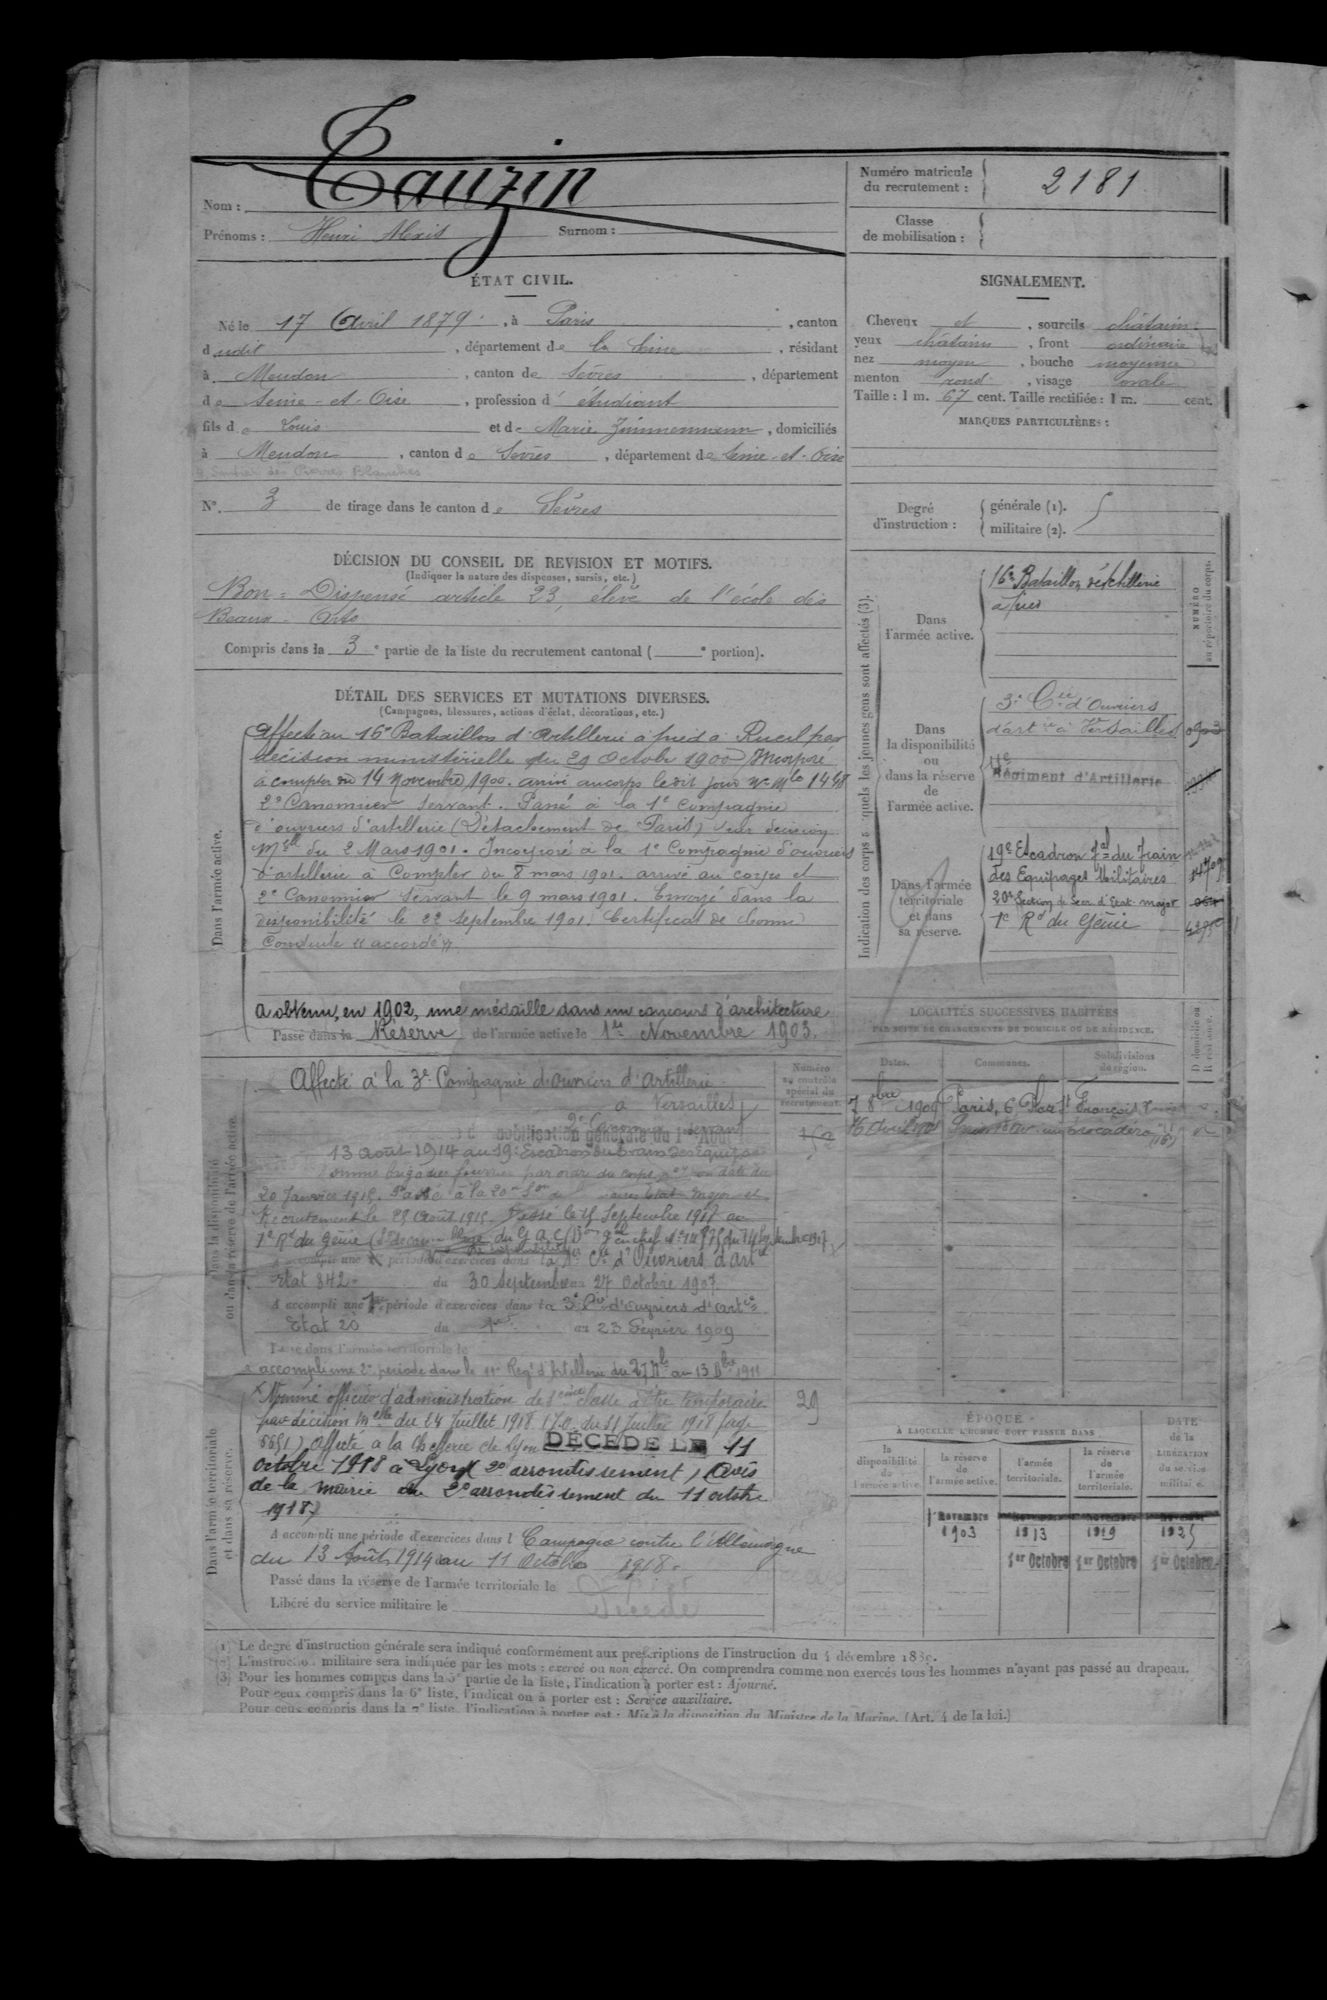 Tauzin
Nom :
Prénoms : Henri Alexis Surnom :
Numéro matricule
du recrutement : 2181
Classe
de mobilisation :
ÉTAT CIVIL.
Né le 17 Avril 1879, à Paris, canton
dudit, département de la Seine, résidant
à Meudon, canton de Sèvres, département
de Seine-et-Oise, profession d'étudiant
fils de Louis et de Marie Zimmermann, domiciliés
à Meudon, canton de Sèvres, département de Seine-et-Oise
Sentier des Pierres Blanches
N°. 3 de tirage dans le canton de Sèvres
SIGNALEMENT.
Cheveux et, sourcils châtains
yeux châtains, front ordinaire
nez moyen, bouche moyenne
menton rond, visage ovale
Taille : 1 m. 67 cent. Taille rectifiée : 1 m. cent.
MARQUES PARTICULIÈRES :
Degré
d'instruction :
générale (1).
militaire (2).
DÉCISION DU CONSEIL DE REVISION ET MOTIFS.
(Indiquer la nature des dispenses, sursis, etc.)
Bon = Dispensé article 23, élève de l'école des
Beaux-Arts
Compris dans la 3e partie de la liste du recrutement cantonal ( e portion).
DÉTAIL DES SERVICES ET MUTATIONS DIVERSES.
(Campagnes, blessures, actions d'éclat, décorations, etc.)
Dans l'armée active.
Affecté au 16e Bataillon d'Artillerie à pied à Rueil par
décision ministérielle du 29 Octobre 1900 Incorporé
à compter du 14 Novembre 1900. arrivé au corps le dit jour No Mle 1448
2e Canonnier Servant. Passé à la 1e Compagnie
d'ouvriers d'artillerie (Détachement de Paris) décision
Mlle du 2 Mars 1901. Incorporé à la 1e Compagnie d'ouvriers
d'artillerie à Compter du 8 mars 1901. arrivé au corps et
2e Canonnier Servant le 9 mars 1901. Envoyé dans la
disponibilité le 22 Septembre 1901. Certificat de bonne
Conduite "accordé".
a obtenu, en 1902, une médaille dans un concours d'architecture
Passé dans la Réserve de l'armée active le 1er Novembre 1903.
Indication des corps auxquels les jeunes gens sont affectés (3).
NUMÉRO
au répertoire du corps.
Dans
l'armée active.
16e Bataillon d'Artillerie
à pied
Dans
la disponibilité
ou
dans la réserve
de
l'armée active.
3e Cie d'Ouvriers
d'artie à Versailles
11e
Régiment d'Artillerie
Dans l'armée
territoriale
et dans
sa réserve.
19e Escadron du Train
des Equipages Militaires
20e Section de Secr. d'Etat-major
1e Rt du Génie
LOCALITÉS SUCCESSIVES HABITÉES
PAR SUITE DE CHANGEMENTS DE DOMICILE OU DE RÉSIDENCE.
Dates. Communes. Subdivisions
de région. D. domicile ou
R. résidence.
7 8bre 1905 Paris, 6 Place St François
Dans la disponibilité
ou dans la réserve de l'armée active.
Numéro
au contrôle
spécial du
recrutement.
Affecté à la 3e Compagnie d'ouvriers d'Artillerie
à Versailles
mobilisation générale du 1er Août
13 Août 1914 au 19e Escadron du train des Equipages
brigadier fourrier par ordre du corps
20 Janvier 1915. Passé à la 20e Son Etat Major et
Recrutement le 25 Août 1915. Passé le 15 Septembre 1917 au
1e Rt du Génie
A accompli une période d'exercices dans la Cie d'Ouvriers d'Artie
Etat 342 du 30 Septembre au 27 Octobre 1907
A accompli une période d'exercices dans la 3e Cie d'ouvriers d'artie
Etat 20 du 1er au 23 Fevrier 1909
Passé dans l'armée territoriale le
a accompli une 2e période dans le 11e Regt d'Artillerie du 27 au 13 1911
Dans l'armée territoriale
et dans sa réserve.
29
Nommé officier d'administration de 3eme classe à titre temporaire
par décision Mlle du 24 Juillet 1918 (J.O. du 31 Juillet 1918 page
6651) Affecté à la Chefferie de Lyon DÉCÉDÉ LE 11
octobre 1918 à Lyon 2e arrondissement, (Avis
de la mairie du 2e arrondissement du 11 octobre
1918)
A accompli une période d'exercices dans l Campagne contre l'Allemagne
du 13 Août 1914 au 11 Octobre 1918.
Passé dans la réserve de l'armée territoriale le
Libéré du service militaire le
Décédé
ÉPOQUE
À LAQUELLE L'HOMME DOIT PASSER DANS
DATE
de la
LIBÉRATION
du service
militaire.
la
disponibilité
de
l'armée active.
la réserve
de
l'armée active.
l'armée
territoriale.
la réserve
de
l'armée
territoriale.
1 Novembre Novembre Novembre
1903 1913 1919 1925
1er Octobre 1er Octobre 1er Octobre
(1) Le degré d'instruction générale sera indiqué conformément aux prescriptions de l'instruction du 4 décembre 1889.
(2) L'instruction militaire sera indiquée par les mots : exercé ou non exercé. On comprendra comme non exercés tous les hommes n'ayant pas passé au drapeau.
(3) Pour les hommes compris dans la 5e partie de la liste, l'indication à porter est : Ajourné.
Pour ceux compris dans la 6e liste, l'indication à porter est : Service auxiliaire.
Pour ceux compris dans la 7e liste, l'indication à porter est : Mis à la disposition du Ministre de la Marine. (Art. 4 de la loi.)